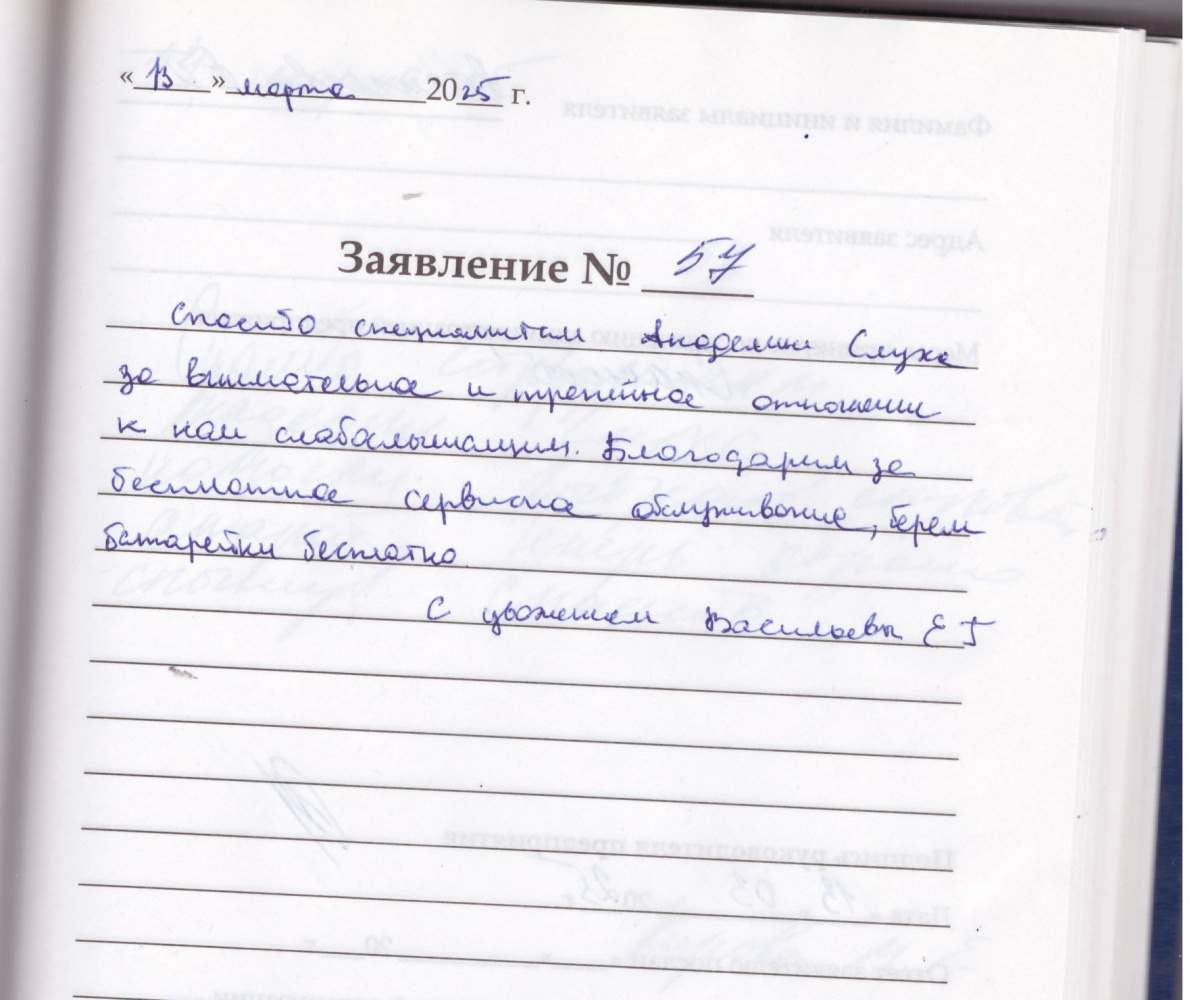 «13» марта 2025 г.
Заявление № 57
Спасибо специалистам Академии Слуха
за внимательное и трепетное отношение
к нам слабослышащим. Благодарим за
бесплатное сервисное обслуживание, берем
батарейки бесплатно.
С уважением Васильевы Е Г